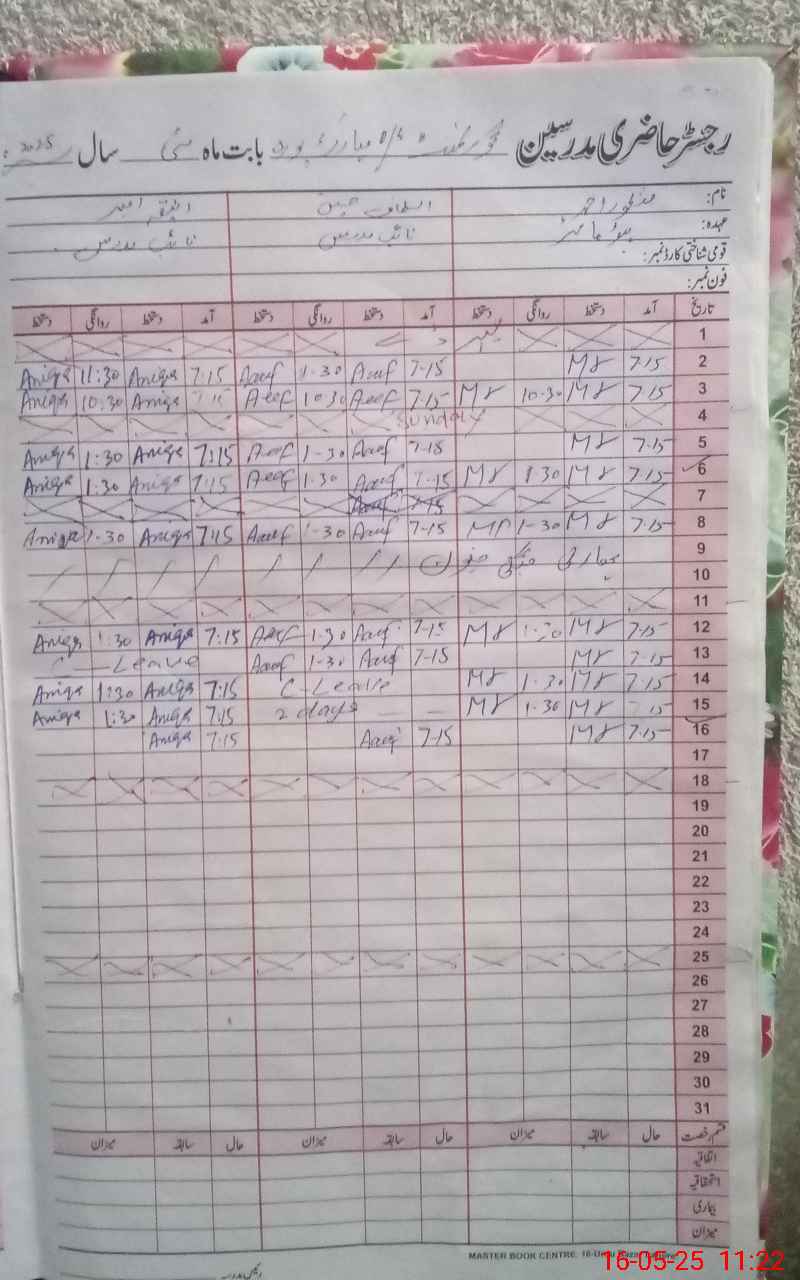 رجسٹر حاضری مدرسین گورنمنٹ بابت ماہ مئی سال 2025
نام: منظور احمد الطاف حسین انیقہ
عہدہ: ہیڈ ماسٹر نائب مدرس نائب مدرس
قومی شناختی کارڈ نمبر:
فون نمبر:
تاریخ آمد دستخط روانگی دستخط آمد دستخط روانگی دستخط آمد دستخط روانگی دستخط
1
2 7-15 M8 7-15 Aauf 1-30 Aauf 7:15 Aniqa 11:30 Aniqa
3 7-15 M8 10-30 M8 7-15 Aeef 10:30 Aeef 7:15 Aniqa 10:30 Aniqa
4 Sunday
5 7-15 M8 7-18 Aaef 1-30 Aeef 7:15 Aniqa 1:30 Aniqa
6 7-15 M8 1-30 M8 7-15 Aauf 1-30 Aeef 7:15 Aniqa 1:30 Aniqa
7 7-15 Aauf
8 7-15 M8 1-30 M8 7-15 Aauf 1-30 Aauf 7:15 Aniqa 1-30 Aniqa
9
10
11
12 7-15 M8 1-30 M8 7-15 Aauf 1-30 Aeef 7:15 Aniqa 1:30 Aniqa
13 7-15 M8 7-15 Aauf 1-30 Aauf C-Leave
14 7-15 M8 1-30 M8 C-Leave 7:15 Aniqa 1:30 Aniqa
15 7-15 M8 1-30 M8 2 days 7:15 Aniqa 1:30 Aniqa
16 7-15 M8 7-15 Aauf 7:15 Aniqa
17
18
19
20
21
22
23
24
25
26
27
28
29
30
31
قسم رخصت حال سابقہ میزان حال سابقہ میزان حال سابقہ میزان
اتفاقیہ
استحقاقیہ
بیماری
میزان
MASTER BOOK CENTRE, 16-Urdu Bazar Lahore
16-05-25 11:22